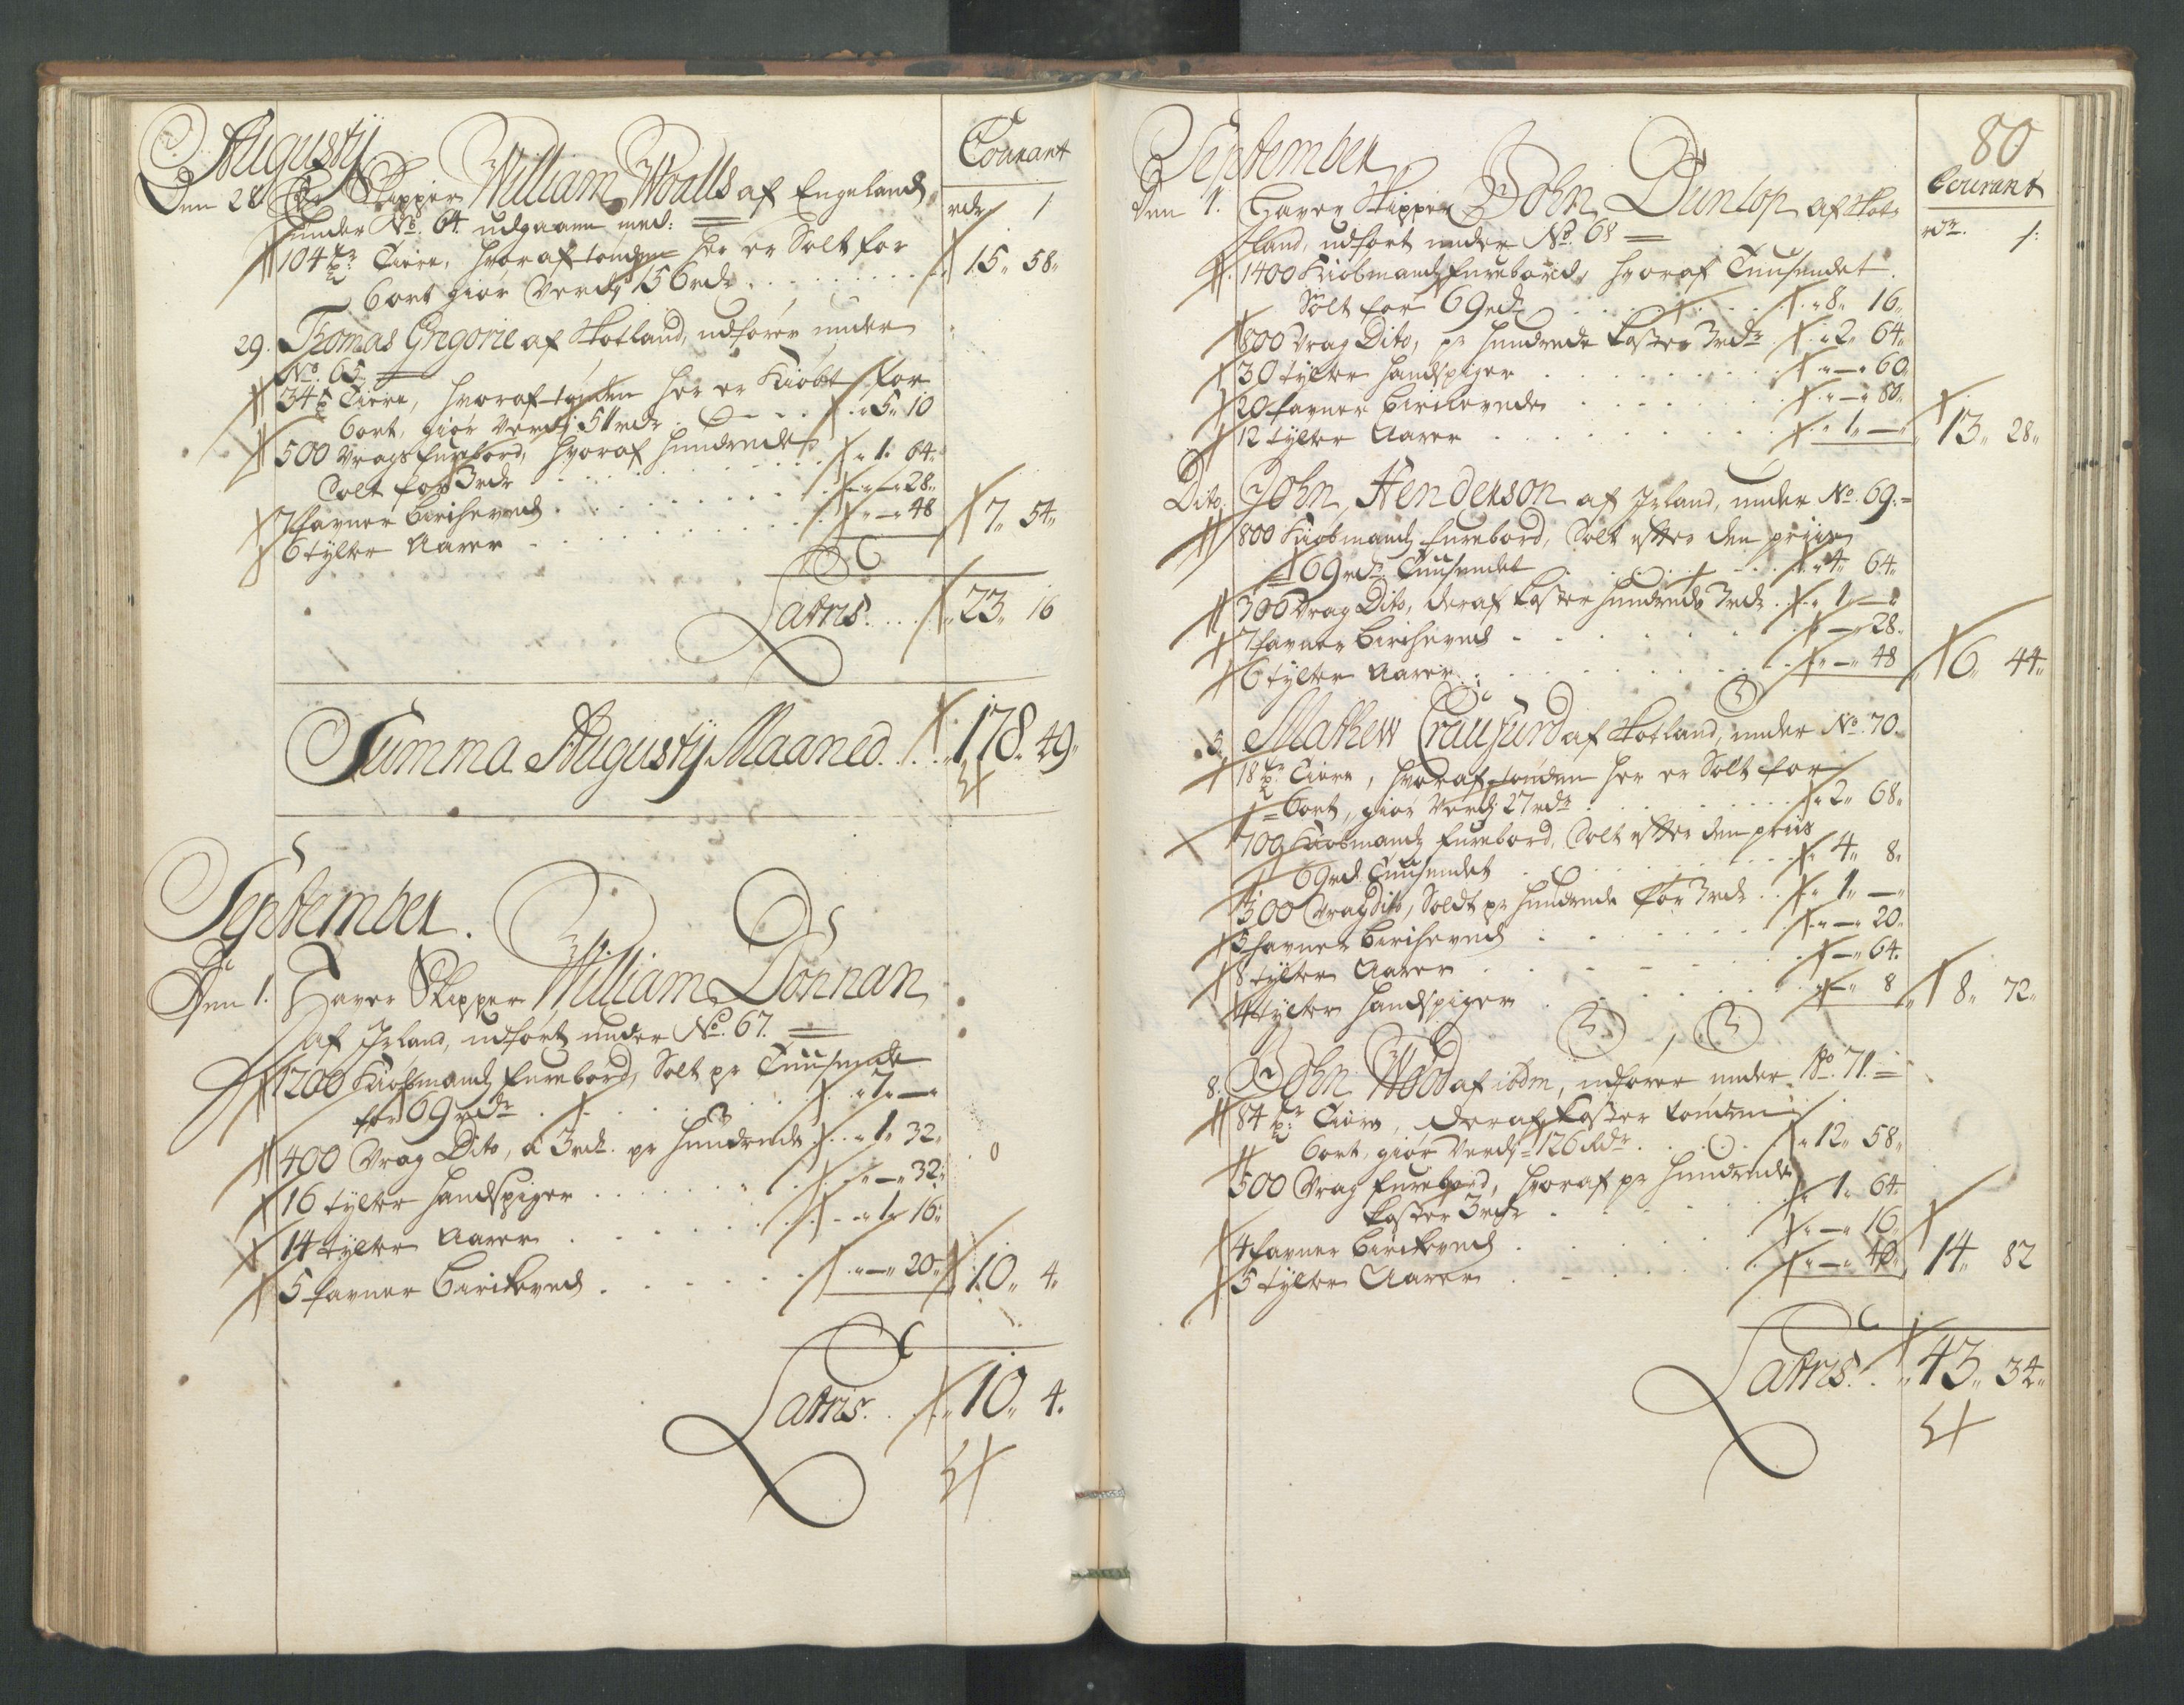 Augustÿ
Courant
Den 28. Er Skipper William Walls af Engeland
rdr 1
under No. 64. udgaaen med:
104 Tiere, hvoraf tönden her er Solt for
6ort giör Verdj 156rdr . . . 15" 58"
29. Thomas Gregorie af Skotland, udförer under
No. 65
34 Tiere, hvoraf tönden her er Kiöbt for
6ort, giör Verdj 51rdr . . . " 5" 10
500 Vrags furebord, hvoraf hundrede
Solt for 3rdr . . . " 1" 64"
7 favner Bircheved . . . " — " 28"
6 tylter Aarer . . . " — " 48 7" 54"
Latris. . . . 23" 16
Summa Augustÿ Maaned . . . 178. 49"
September.
Den 1. Haver Skipper William Donnan
af Irland, udfört under No. 67.
1200 Kiöbmands furebord, Solt pr Tüüsende
for 69rdr . . . " 7" — "
400 Vrag Dito, á 3rdr. pr hundrede . . " 1" 32"
16 tylter handspiger . . . " — " 32"
14 tylter Aarer . . . " 1" 16"
5 favner Birckeved . . . " — " 20" 10" 4"
Latris. . . " 10" 4.
80
September
Courant
Den 1. Haver Skipper John Dunlop af Skot
rdr. 1:
land, udfört under No. 68
1400 Kiöbmands furebord, hvoraf Tüüsendet
Solt for 69rdr . . . " 8" 16"
800 Vrag Dito, pr hundrede koster 3rdr . . " 2" 64"
30 tylter handspiger . . . " — " 60"
20 favner Bircheved . . . " — " 80"
12 tylter Aarer . . . " 1" — " 13" 28"
Dito. John Henderson af Irland, under No. 69.
800 Kiöbmands furebord, Solt efter den priis
69rdr Tüüsendet . . . " 4" 64"
300 Vrag Dito, deraf koster hundrede 3rdr . . " 1" — "
7 favner Bircheved . . . " — " 28"
6 tylter Aarer . . . " — " 48 6" 44"
5. Mathew Craufurd af Skotland, under No. 70.
18 Tiere, hvoraf tönden her er Solt for
6ort, giör Verdj 27rdr . . . " 2" 68"
700 Kiöbmands furebord, Solt efter den priis
69rd Tüüsendet . . . " 4" 8"
300 Vrag Dito, Soldt pr hundrede for 3rdr . . " 1" — "
5 favner Bircheved . . . " — " 20"
8 tylter Aarer . . . " — " 64"
4 tylter handspiger . . . " — " 8 8" 72"
8. John Wood af ibdm, udförer under No. 71.
84 Tiere, deraf koster tönden
6ort, giör Verdj 126 Rdr. . . . " 12" 58"
500 Vrag furebord, hvoraf pr hundrede
koster 3rdr . . . " 1" 64"
4 favner Birckeved . . . " — " 16"
5 tylter Aarer . . . " — " 40" 14" 82
Latris. . " 43" 34"